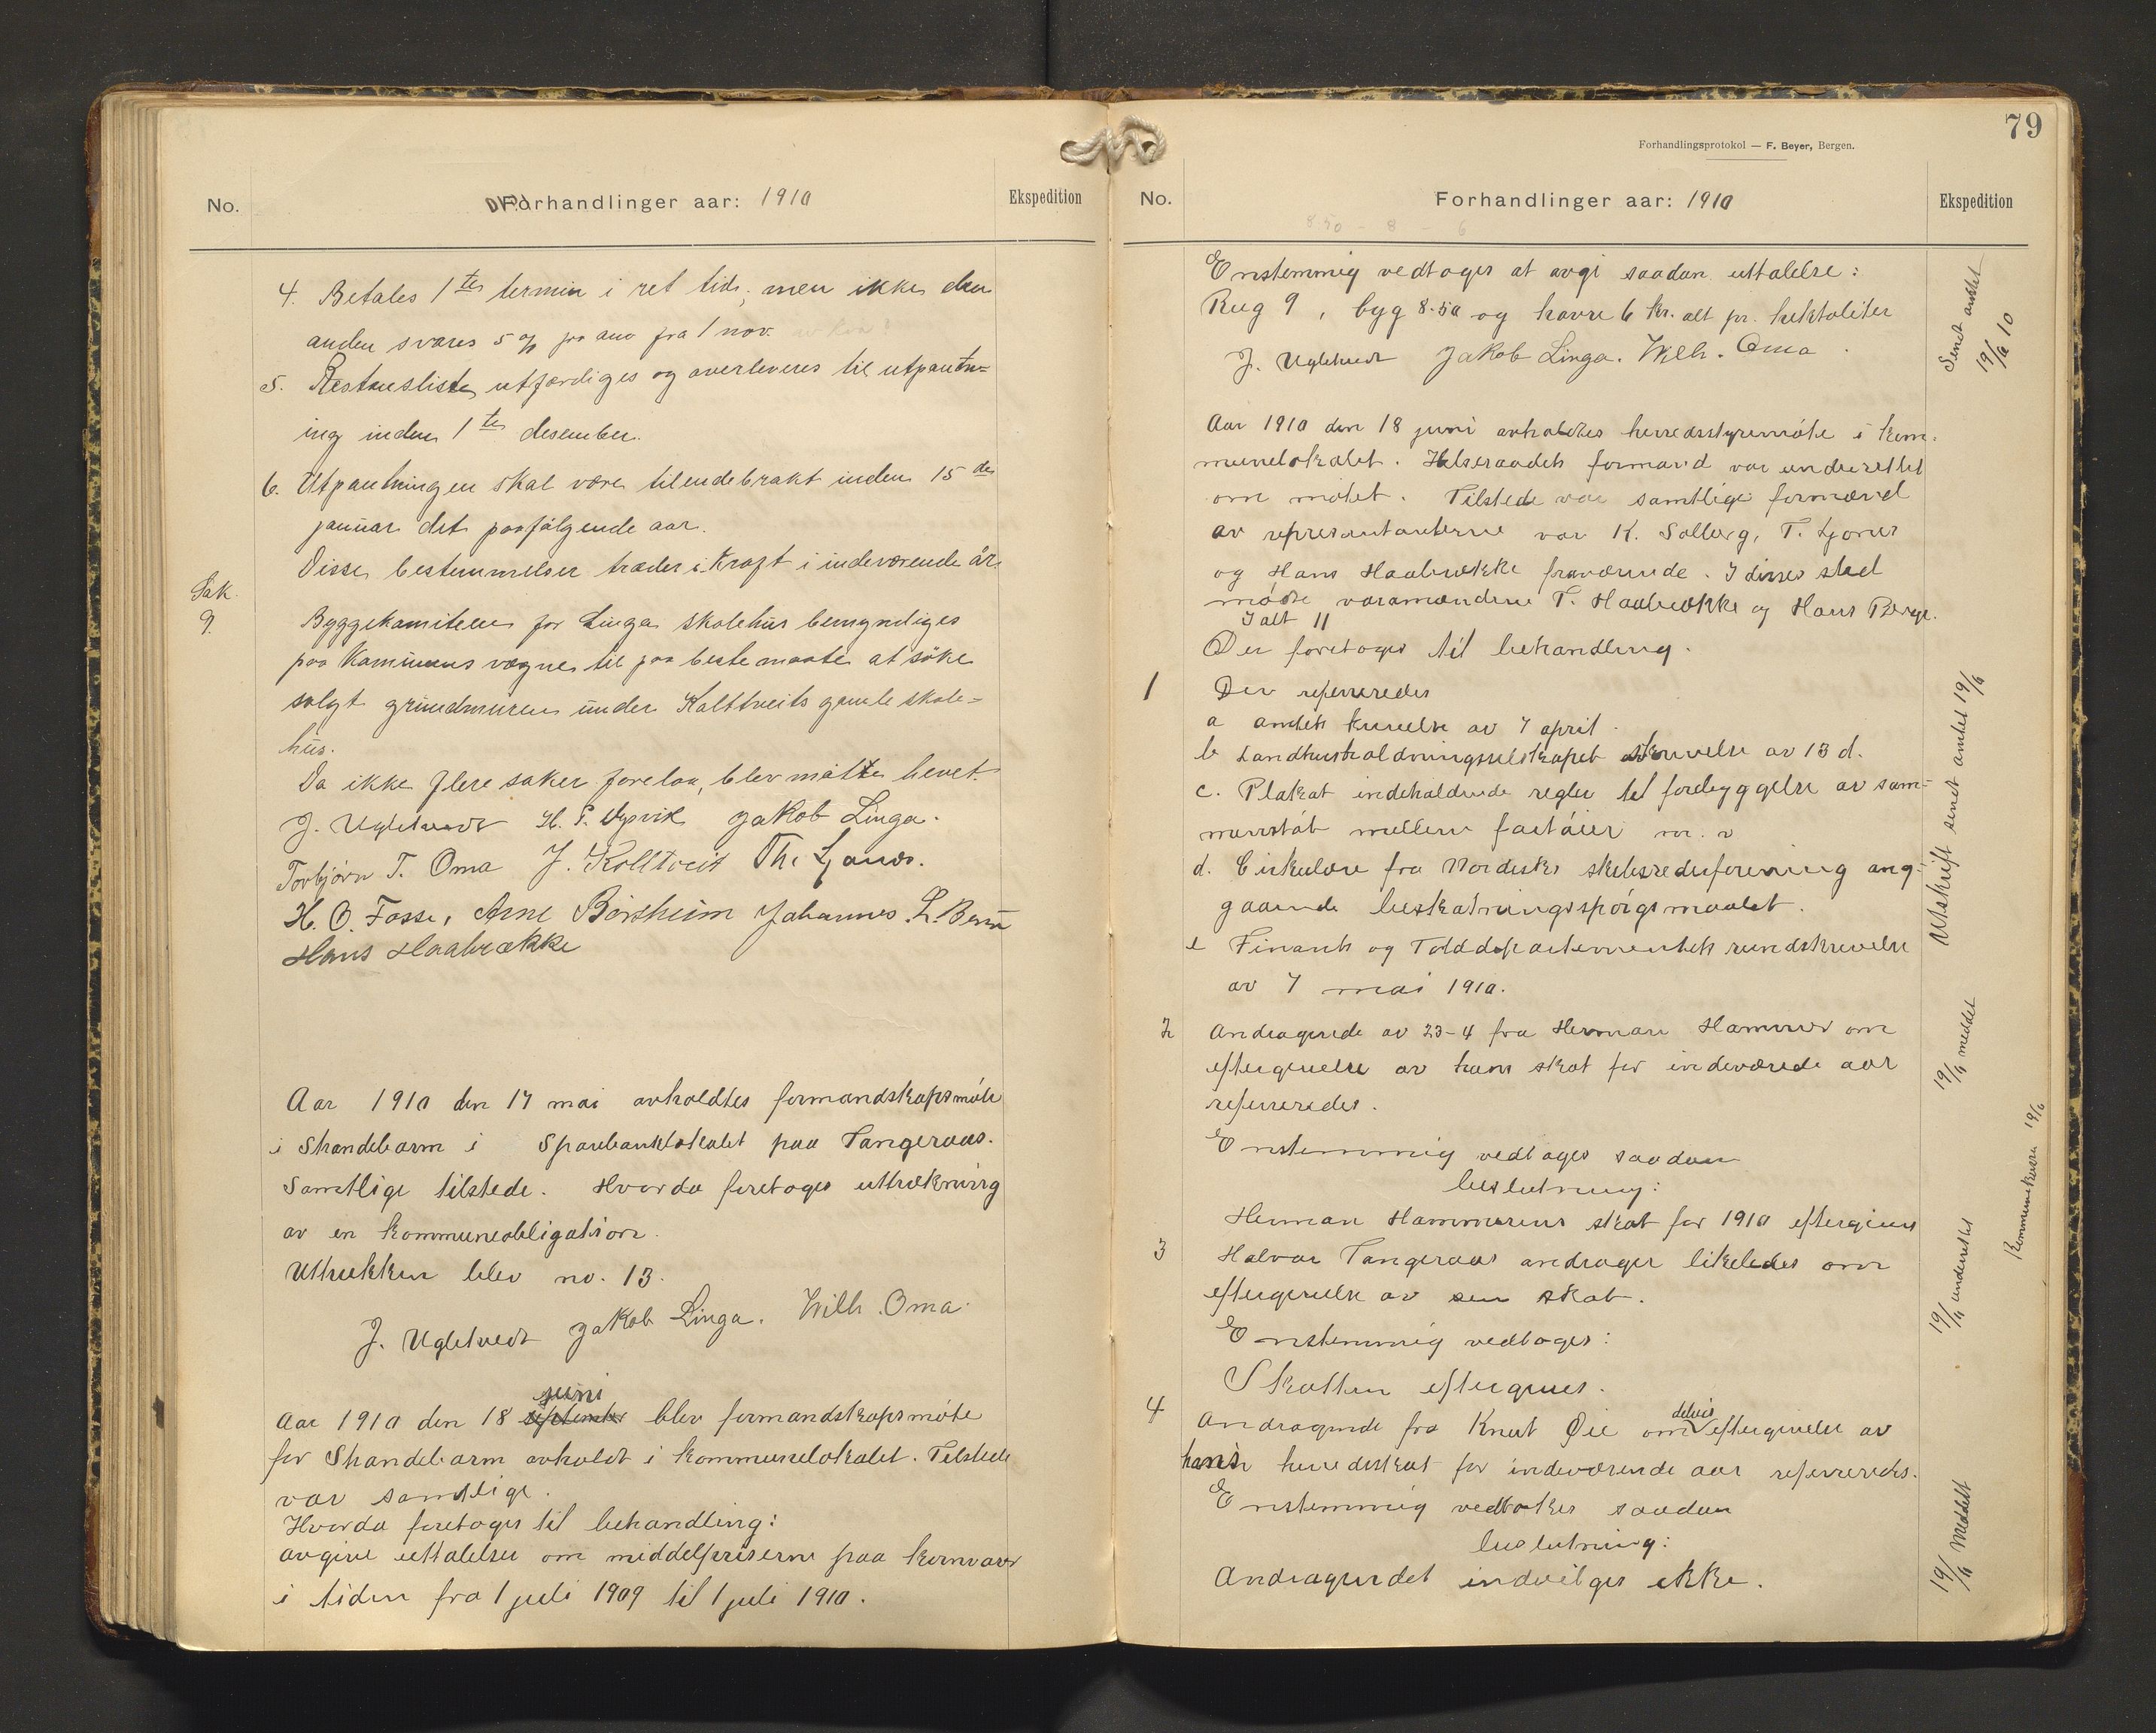 No.
Forhandlinger aar: 1910
Ekspedition
4. Betales 1ste termin i ret tid, men ikke den
anden svares 5 % pro ano fra 1 nov.
5. Restanseliste utfærdiges og overleveres til utpantn=
ing inden 1ste desember.
6. Utpantningen skal være tilendebrakt inden 15de
januar det paafølgende aar.
Disse bestemmelser træder i kraft i indeværende år.
Sak
9.
Byggekomiteen for Linga skolehus bemyndiges
paa kommunens vegne til paa beste maate at søke
solgt grundmuren under Kolltveits gamle skole=
hus.
Da ikke flere saker forelaa, blev møtet hevet.
J. Ugletvedt H. P. Vyvik Jakob Linga.
Torbjørn T. Oma J. Kolltveit Th. Ljones.
H. O. Fosse, Arne Børsheim Johannes L. Berge
Hans Haabrække
Aar 1910 den 17 mai avholdtes formandskapsmøte
i Strandebarm i Sparebanklokalet paa Tangeraas.
Samtlige tilstede. Hvorda foretoges uttrækning
av en kommuneobligation.
Uttrukken blev no. 13.
J. Ugletvedt Jakob Linga. Wilh. Oma.
juni
Aar 1910 den 18 september blev formandskapsmøte
for Strandebarm avholdt i kommunelokalet. Tilstede
var samtlige.
Hvorda foretoges til behandling:
avgive uttalelse om middelpriserne paa kornvarer
i tiden fra 1 juli 1909 til 1 juli 1910.
79
Forhandlingsprotokol — F. Beyer, Bergen.
No.
Forhandlinger aar: 1910
Ekspedition
8.50 - 8 - 6
Enstemmig vedtoges at avgi saadan uttalelse:
Rug 9, byg 8.50 og havre 6 kr. alt pr. hektoliter
J. Ugletvedt Jakob Linga. Wilh. Oma.
Sendt amtet
19/6 10
Aar 1910 den 18 juni avholdtes herredsstyremøte i kom=
munelokalet. Helseraadets formand var underrettet
om møtet. Tilstede var samtlige formænd
av representanterne var K. Solberg, T. Ljones
og Hans Haabrække fraværende. I disses sted
møtte varamændene T. Haabrække og Hans Berge.
Ialt 11
Der foretoges til behandling.
1 Der refereredes
a amtets skrivelse av 7 april.
b Landhusholdningsselskapet skrivelse av 13 d.
c. Plakat indeholdende regler til forebyggelse av sam=
menstøt mellem fartøier m. v
d. Cirkulære fra Nordisk skibsrederforening ang=
gaaende beskatningsspørgsmaalet.
e Finants og Tolddepartementets rundskrivelse
av 7 mai 1910.
Utskrift sendt amtet 19/6
2 Andragende av 23-4 fra Herman Hammer om
eftergivelse av hans skat for indeværende aar
refereredes.
Enstemmig vedtoges saadan
beslutning:
Herman Hammerens skat for 1910 eftergives
19/6 meddelt
3 Halvor Tangeraas andrager likeledes om
eftergivelse av sin skat.
Enstemmig vedtoges:
Skatten eftergives.
19/6 underrettet
Kommunekasse 19/6
4 Andragende fra Knut Øie om delvis eftergivelse av
hans herredsskat for indeværende aar refereredes.
Enstemmig vedtokes saadan
beslutning:
Andragendet indvilges ikke.
19/6 Meddelt